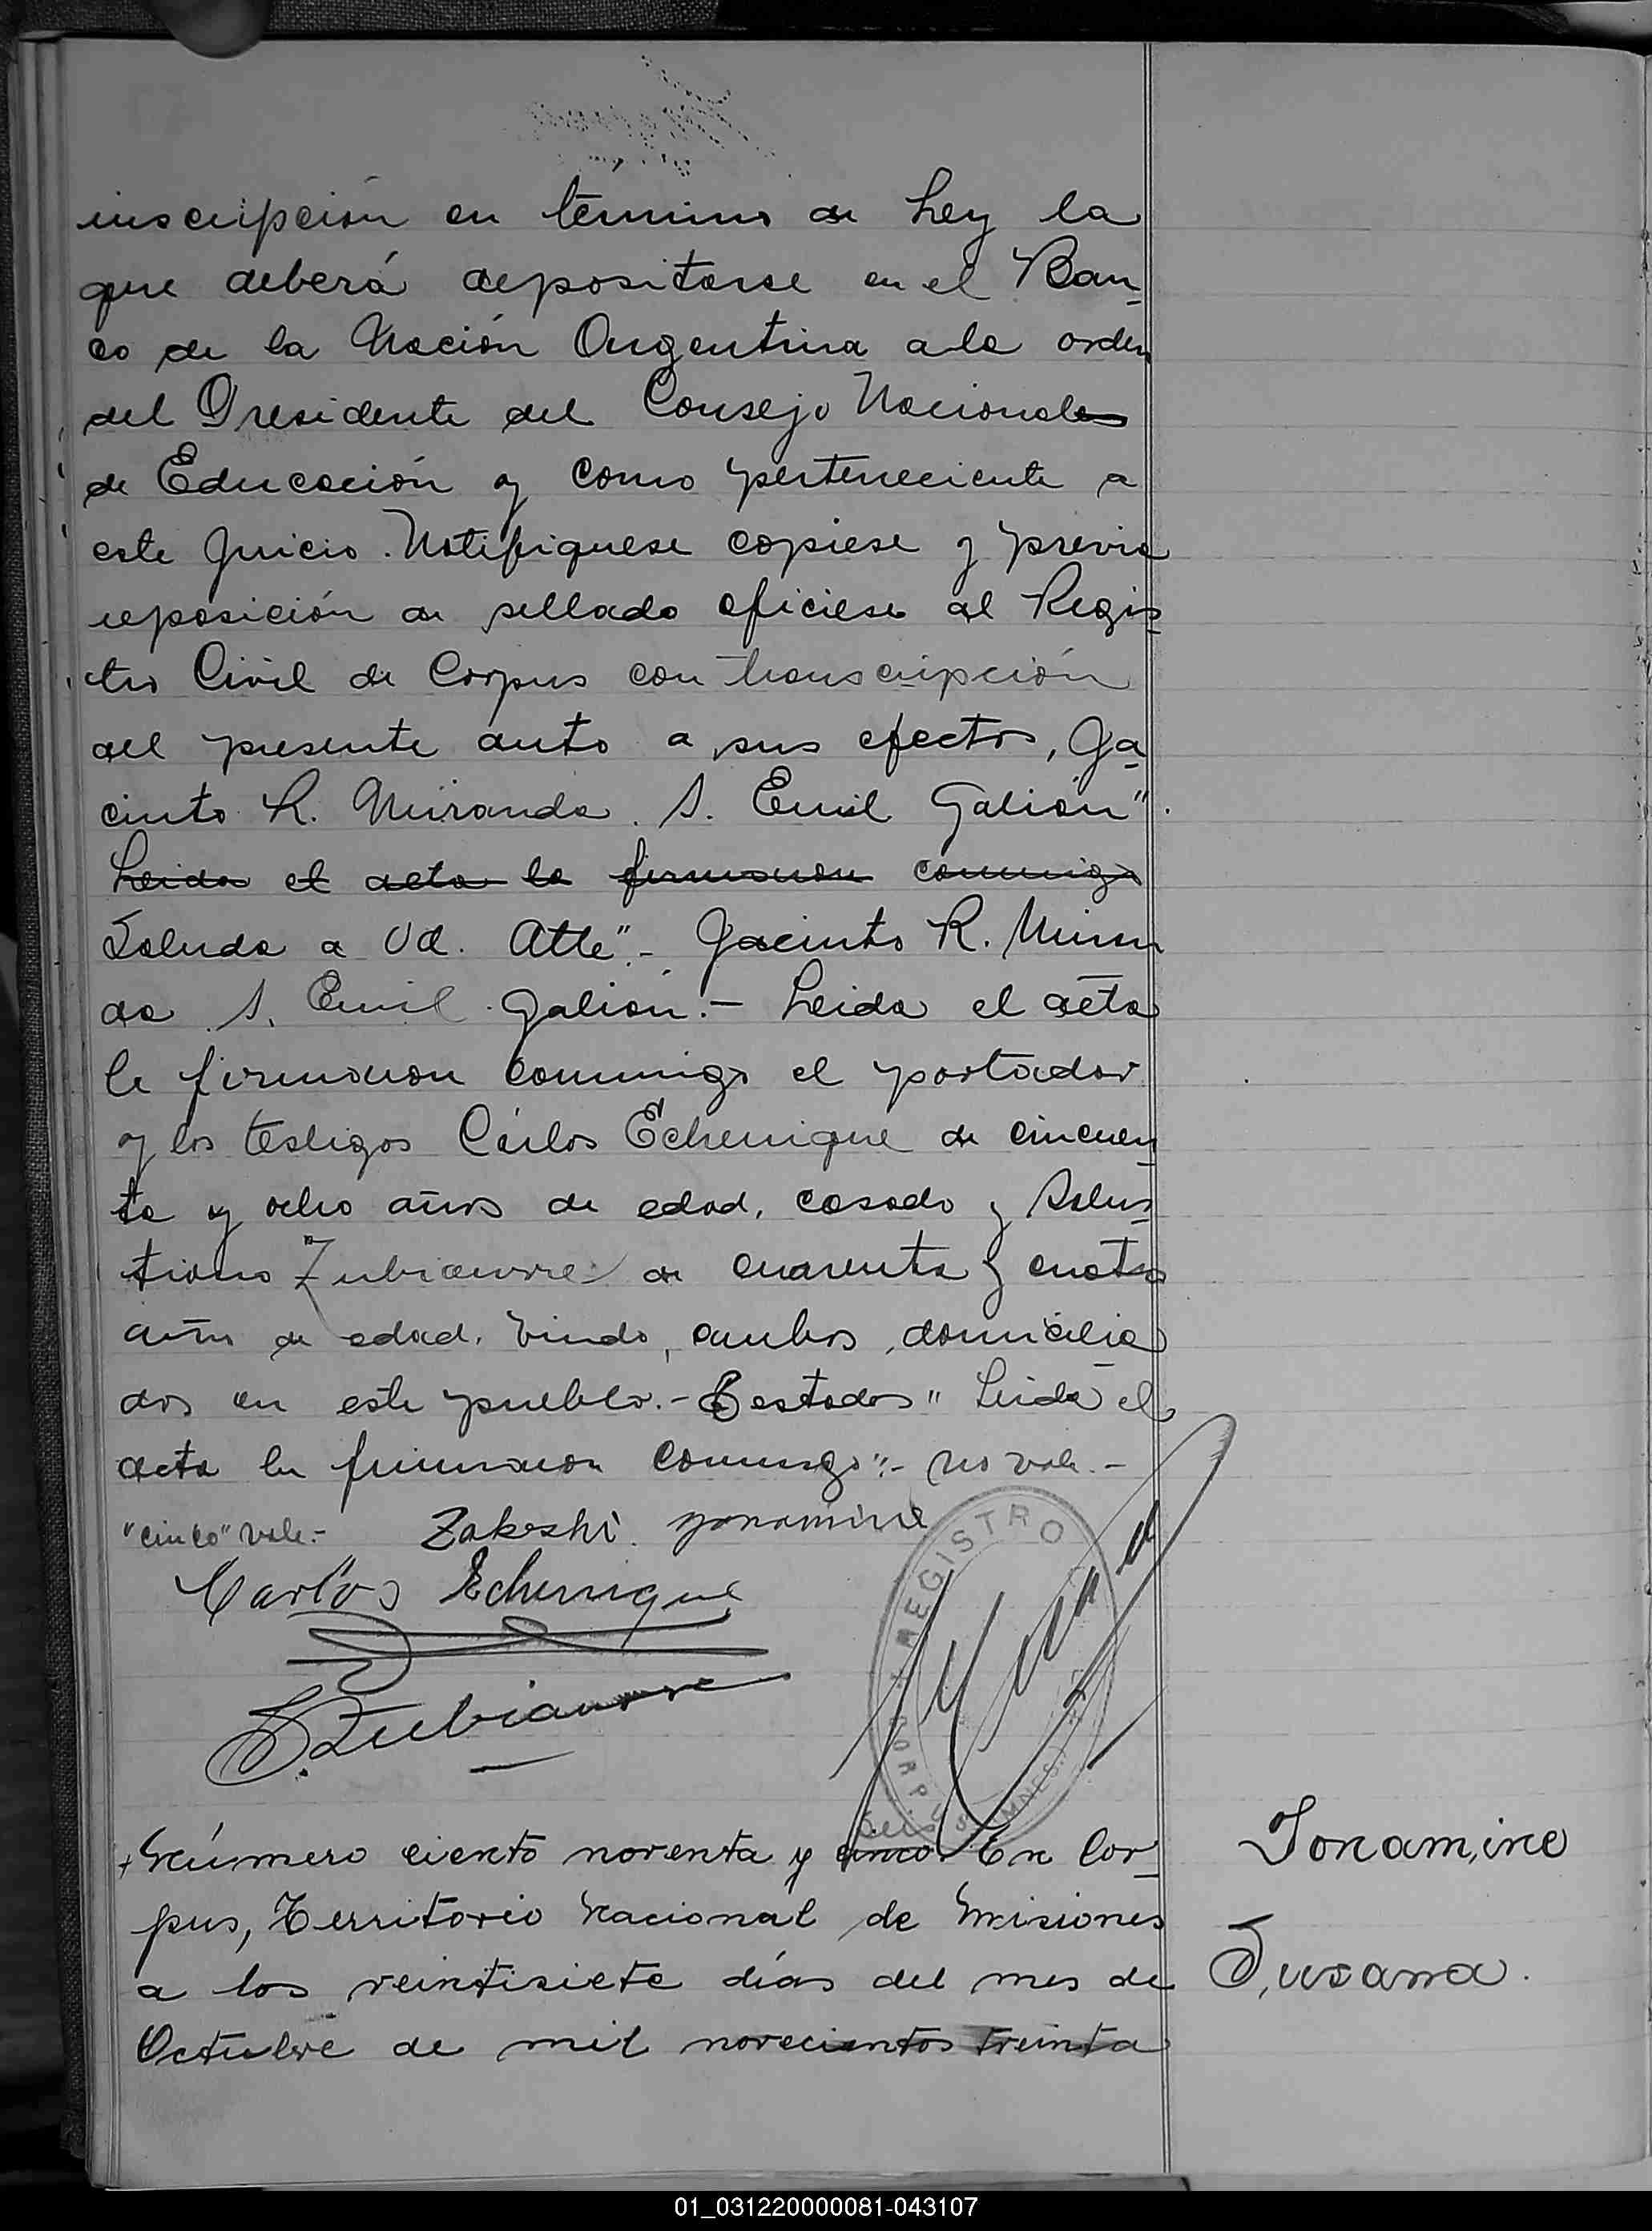 inscripción en término de Ley la
que deberá depositarse en el Ban-
co de la Nación Argentina a la orden
del Presidente del Consejo Nacional
de Educación y como perteneciente a
este Juicio. Notifiquese copiese y previa
reposición de sellado oficiese al Regis-
tro Civil de Corpus con transcripción
del presente auto a sus efectos, Ja-
cinto R. Miranda. S. Emil Galian"
Leida el acta la firmaron conmigo
Saluda a Ud. Atte".- Jacinto R. Miran
da S. Emil Galian.- Leida el acta
la firmaron conmigo el portador
y los testigos Cárlos Echenique de cincuen-
ta y ocho años de edad, casado y Salus-
tiano Zubiaurre de cuarenta y cuatro
años de edad, viudo, ambos domicilia-
dos en este pueblo.- Testados "Leida el
acta la firmaron conmigo".- no vale.-
"cinco" vale.- Zakeshi yonamine
Carlos Echenique
S. Zubiaurre
REGISTRO
seis
Número ciento noventa y cinco En Cor-
pus, Territorio Nacional de Misiones
a los veintisiete días del mes de
Octubre de mil novecientos treinta
Yonamine
Susana.
01_031220000081-043107